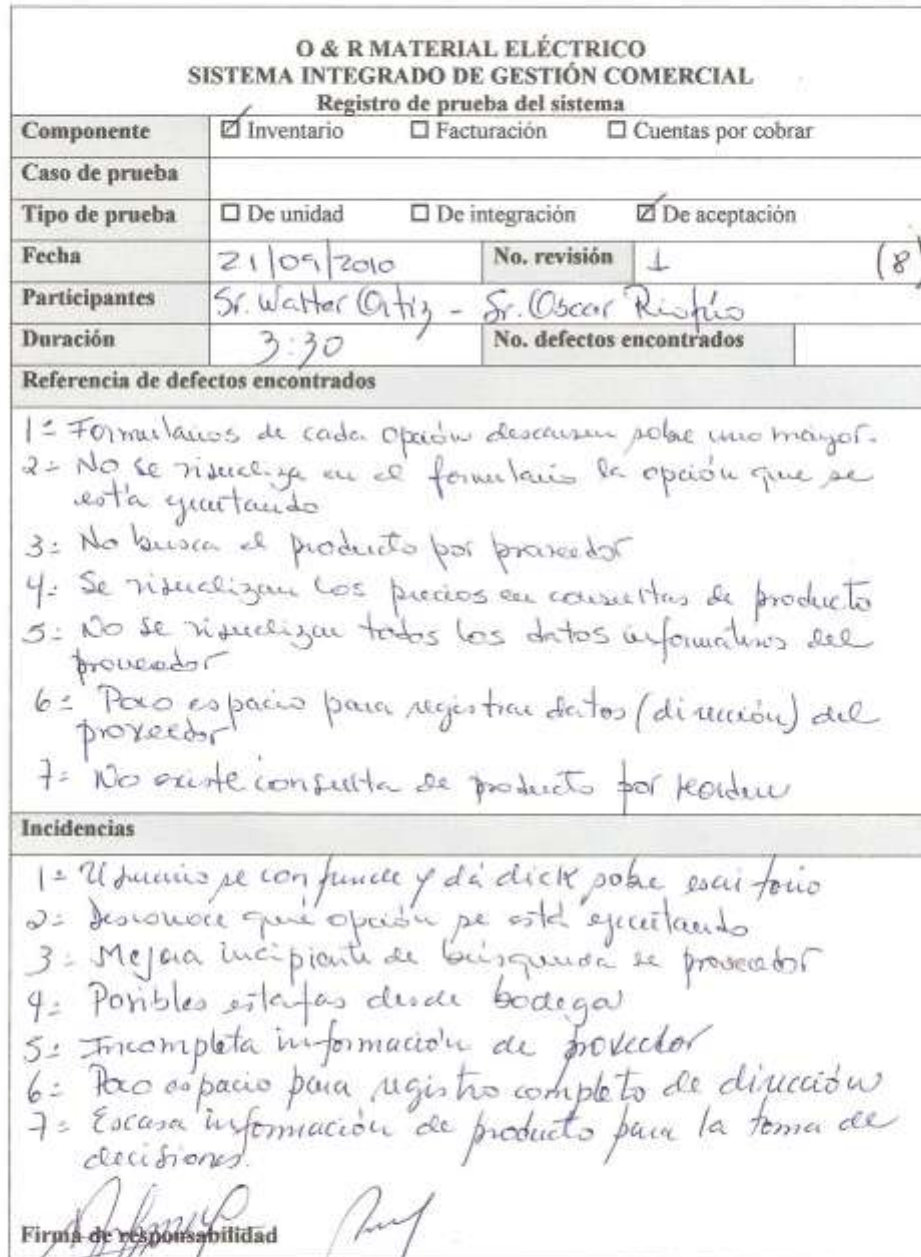 O & R MATERIAL ELÉCTRICO
SISTEMA INTEGRADO DE GESTIÓN COMERCIAL
Registro de prueba del sistema
Componente ☑ Inventario ☐ Facturación ☐ Cuentas por cobrar
Caso de prueba
Tipo de prueba ☐ De unidad ☐ De integración ☑ De aceptación
Fecha 21/09/2010 No. revisión 1 (8)
Participantes Sr. Walter Ortiz - Sr. Oscar Riofrío
Duración 3:30 No. defectos encontrados
Referencia de defectos encontrados
1= Formularios de cada opción descansen sobre uno mayor.
2= No se visualiza en el formulario la opción que se
está ejecutando
3= No busca el producto por proveedor
4= Se visualizan los precios en consultas de producto
5= No se visualizan todos los datos informativos del
proveedor
6= Poco espacio para registrar datos (dirección) del
proveedor
7= No existe consulta de producto por
Incidencias
1= Usuario se confunde y dá click sobre escritorio
2= Desconoce qué opción se está ejecutando
3= Mejora incipiente de búsqueda de proveedor
4= Posibles estafas desde bodega
5= Incompleta información de proveedor
6= Poco espacio para registro completo de dirección
7= Escasa información de producto para la toma de
decisiones.
Firma de responsabilidad